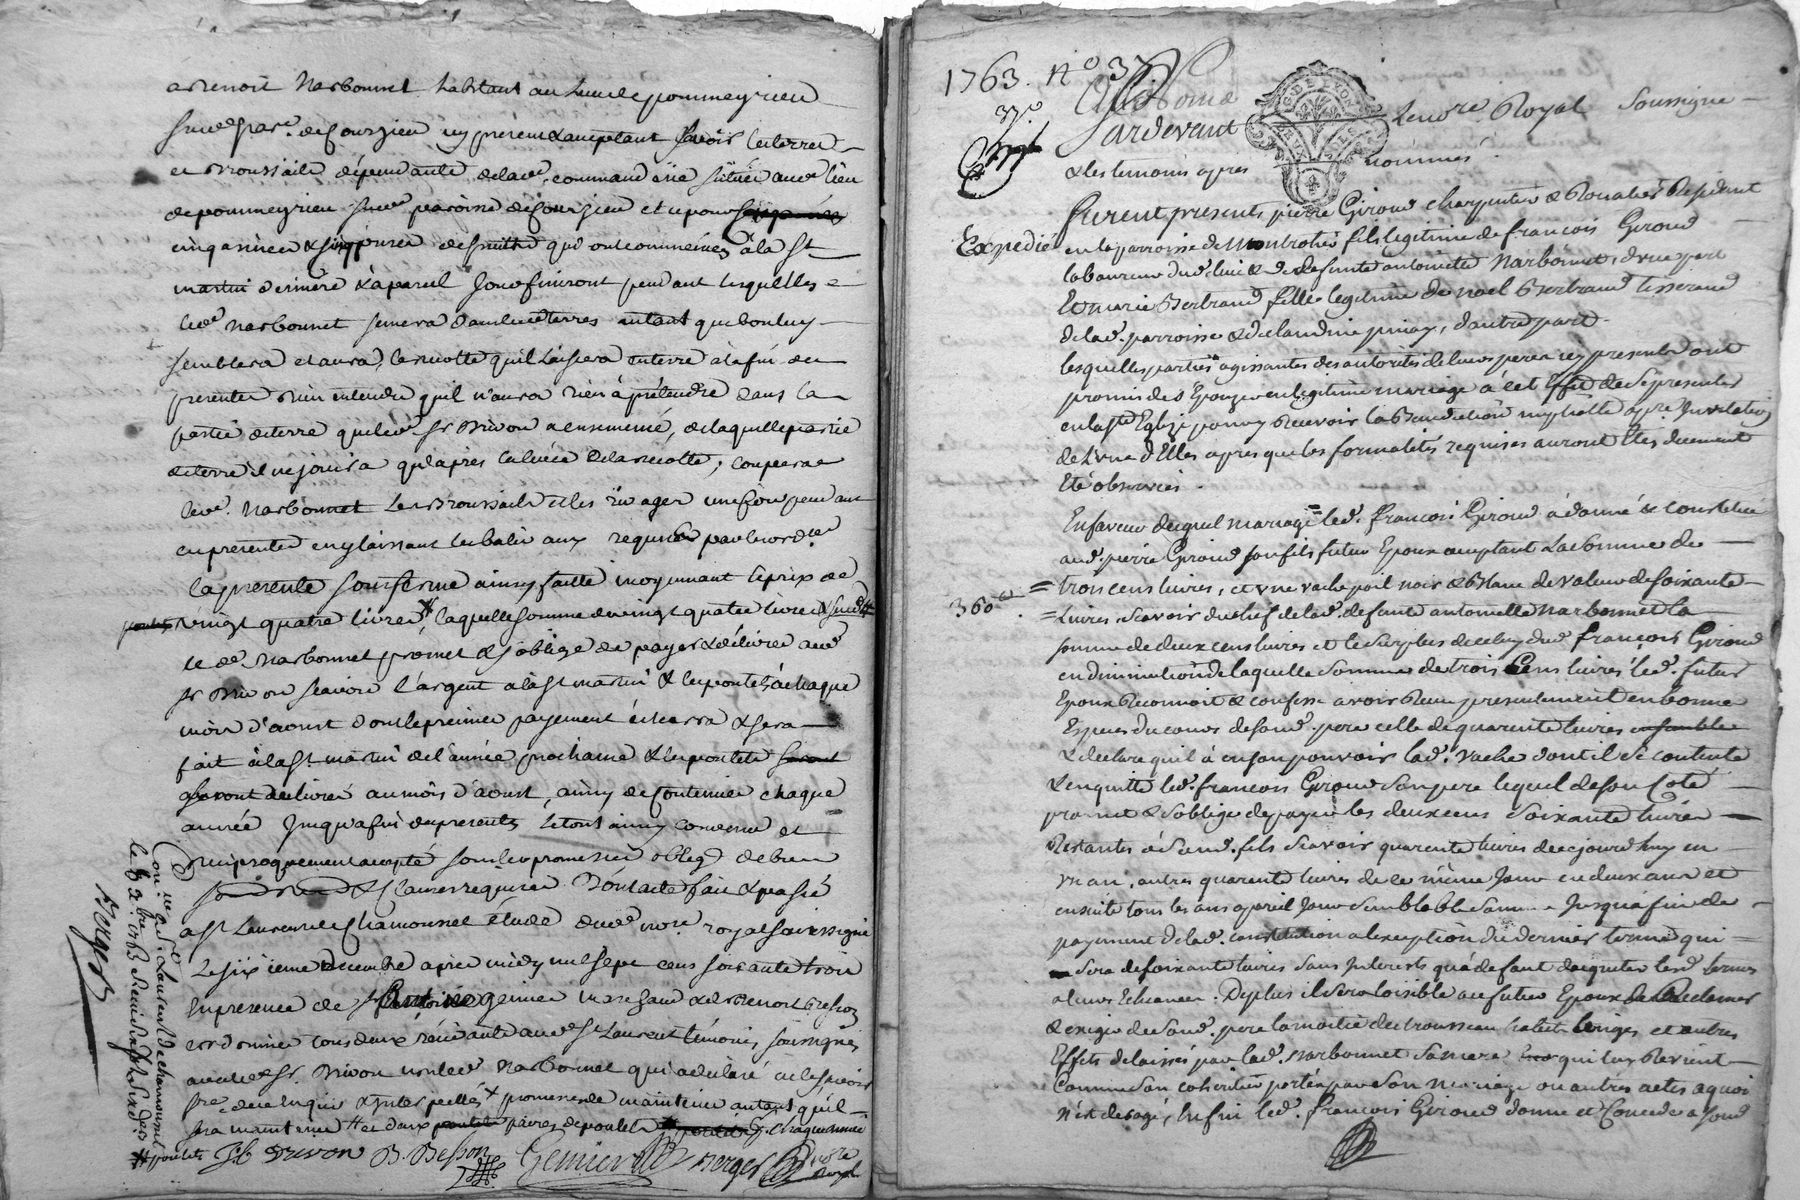 a Benoit Narbonnet habitant au lieu de pommeyrieu
susd. parr. de Courzieu icy present & acceptant scavoir les terres
et Broussaille dépendante de lad. commanderie situées aud. lieu
de pommeyrieu susd. paroisse de Courzieu et ce pour
cinq années & cinq prises de suitte qui ont commencées à la St
martin derniere & à pareil Jour finiront pendant lesquélles
led. Narbonnet semera dans lesd. terres autant que bon luy
semblera et aura la recolte quil laissera en terre à la fin des
presentes Bien entendu quil n'aura rien à prétendre dans la
partie de terre que led. Sr Brivon a ensemencé, de laquelle partie
de terre il ne jouira qu'apres la levée de la recolte, coupera
led. Narbonnet les Broussaille et les rivages une fois pendant
ces presentes en y laissant les balivaux requis par l'ord.ce
la presente sousferme ainsy faitte moyennant le prix de
vingt quatre livres, laquelle somme de vingt quatre livres & susd.
le d. Narbonnet promet & s'oblige de payer & délivrer aud.
Sr Brivon scavoir l'argent à la St martin & les poulets à chaque
mois d'aoust dont le premier payement écherra & sera
fait à la St martin de l'année prochaine & les poulets
seront delivrés au mois d'aoust, ainsy de Continuer chaque
année Jusqu'a fin des presentes le tout ainsy convenu et
reciproquement accepté sous les promesses oblig. de biens
& Clauses requises Dont acte fait & passé
a St Laurent de Chamousset étude dud. no.re royal soussigné
Le sixieme Decembre apres midy mil sept cens soixante trois
En presence de Sr Antoine Geniner marchand & de Benoit Besson
cordonnier tous deux résidants aud. St Laurent témoins soussignés
avec led. Sr Brivon non led. Narbonnet qui a déclaré ne le scavoir
fre. de ce enquis & Interpellés promesse de maintenir autant qu'il
sera maintenu & deux paires de poulets chaque année
poulets JC Brivon B. Besson Berger no.re Royal
Con.lé à St Laurent de chamousset
le 9 Xbre 1763 Recu
Berger
1763. N° 37.
37.e
Expedié
360
Pardevant Le no.re Royal Soussigné
& les temoins apres nommés
furent presents pierre Giroud charpentier & Rouatier Residant
en la parroisse de Montrotier fils legitime de francois Giroud
laboureur dud. lieu & de defunte antoinette Narbonnet, d'une part
Et marie Bertrand fille legitime de noel Bertrand tisserand
de lad. parroisse & de claudine pinay, d'autre part
lesquelles parties agissantes des autorités de leurs peres icy presents ont
promis de s'Epouser en legitime mariage à cet Effet de se presenter
en la Ste Eglize pour y Recevoir la Benediction nuptialle a pre. Invitation
de L'une d'Elles apres que les formalités requises auront étés duement
été observées.
En faveur duquel mariage led. francois Giroud à donné & constitué
aud. pierre Giroud son fils futur Epoux acceptant La somme de
trois cens livres, et une vache poil noir & Blanc de valeur de soixante
Livres, scavoir du chef de lad. defunte antoinette Narbonnet la
somme de deux cens livres et le surplus de celuy dud. francois Giroud
en diminution de laquelle somme de trois Cens livres led. futur
Epoux Reconnoit & confesse avoir Reçu presentement en bonne
Especes du cours de sond. pere celle de quarente livres
& declare qu'il à en son pouvoir lad. vache dont il se contente
& en quitte led. francois Giroud son pere lequel de son Coté
promet & s'oblige de payer les deux cens soixante livres
Restantes à sond. fils scavoir quarente livres de ce jourd'huy en
un an, autres quarente livres de ce même Jour en deux ans et
ensuite tous les ans a pareil Jour semblable somme Jusqu'a fin de
payement de lad. constitution a l'exeption du dernier terme qui
sera de soixante livres sans Interets qu'a defaut d'acquiter lesd. termes
a leurs Echeances. De plus il sera loisible au futur Epoux de Reclamer
& exiger de sond. pere la moitié des trousseau habits linges et autres
Effets delaissés par lad. Narbonnet sa mere qui luy Revient
Comme son coheritier portés par son mariage ou autres actes a quoi
n'est derogé, Enfin led. francois Giroud donne et Concede a sond.